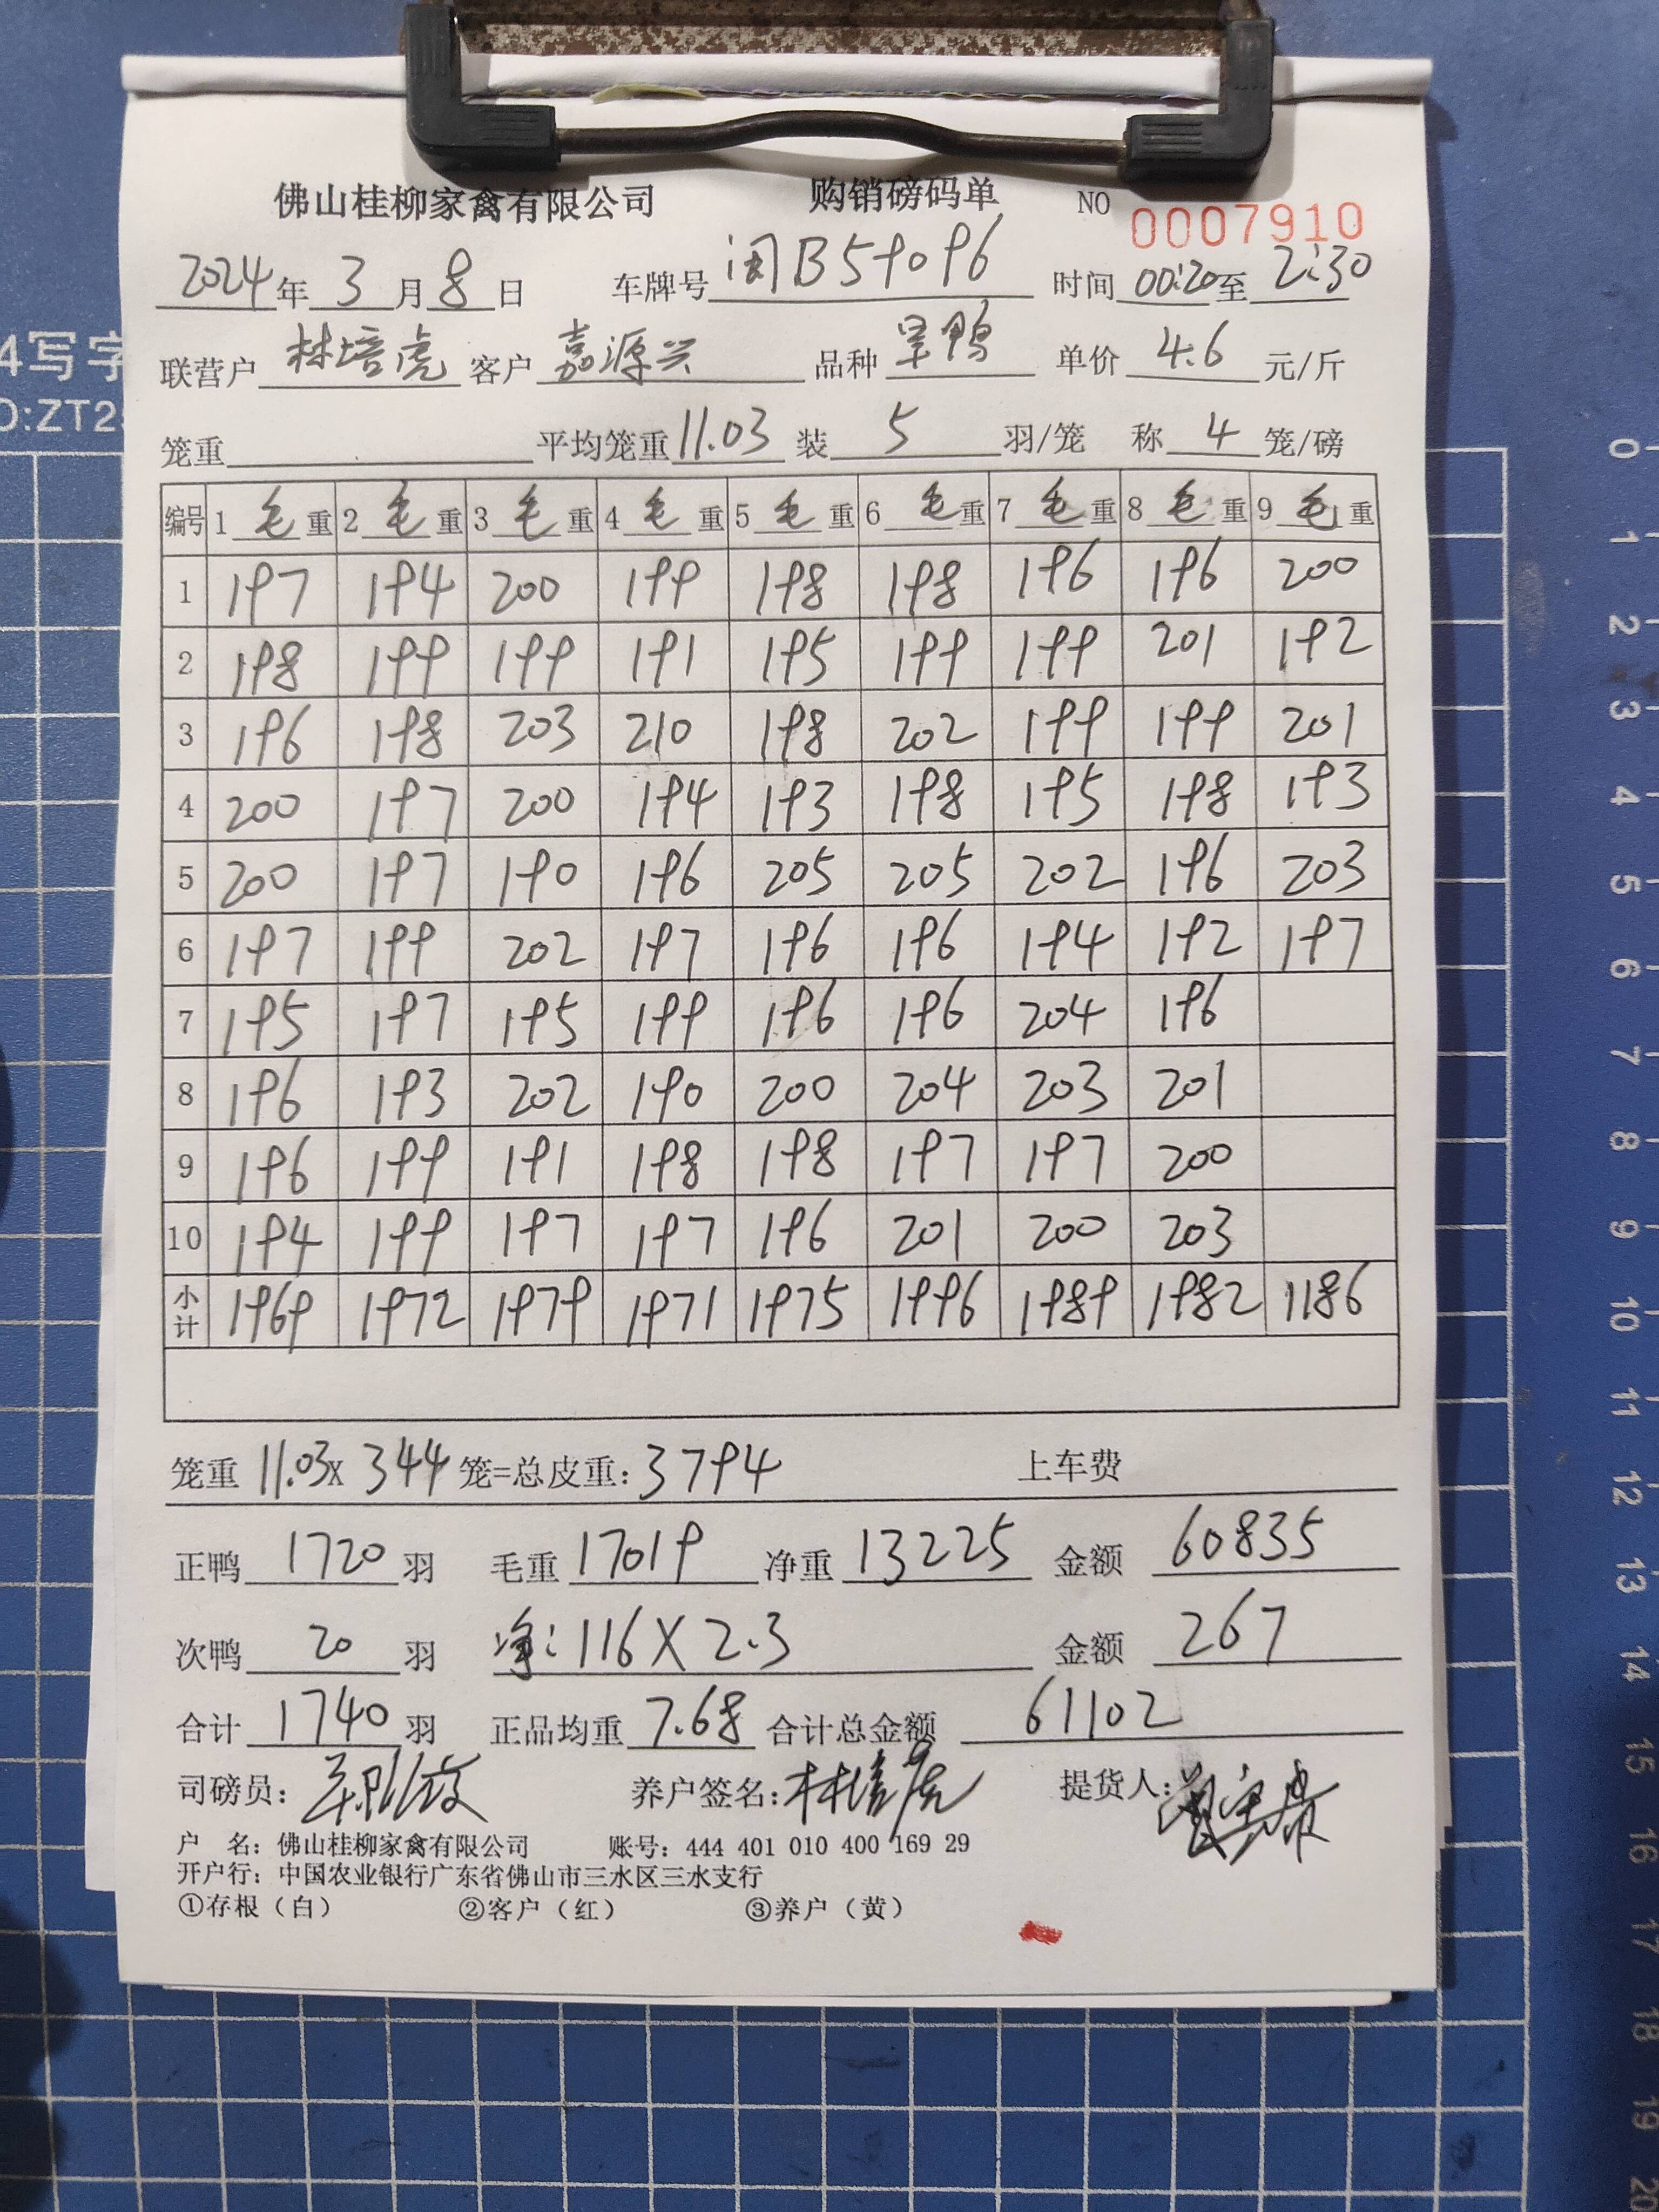 佛山桂柳家禽有限公司 购销磅码单 NO 0007910
2024年 3 月 8 日 车牌号 闽B59096 时间 00:20 至 2:30
联营户 林培虎 客户 嘉源兴 品种 旱鸭 单价 4.6 元/斤
笼重 平均笼重 11.03 装 5 羽/笼 称 4 笼/磅
编号 1 毛 重 2 毛 重 3 毛 重 4 毛 重 5 毛 重 6 毛 重 7 毛 重 8 毛 重 9 毛 重
1 197 194 200 199 198 198 196 196 200
2 198 199 199 191 195 199 199 201 192
3 196 198 203 210 198 202 199 199 201
4 200 197 200 194 193 198 195 198 193
5 200 197 190 196 205 205 202 196 203
6 197 199 202 197 196 196 194 192 197
7 195 197 195 199 196 196 204 196
8 196 193 202 190 200 204 203 201
9 196 199 191 198 198 197 197 200
10 194 199 197 197 196 201 200 203
小计 1969 1972 1979 1971 1975 1996 1989 1982 1186
笼重 11.03 x 344 笼=总皮重: 3794 上车费
正鸭 1720 羽 毛重 17019 净重 13225 金额 60835
次鸭 20 羽 净: 116 X 2.3 金额 267
合计 1740 羽 正品均重 7.68 合计总金额 61102
司磅员: 养户签名: 林培虎 提货人:
户 名: 佛山桂柳家禽有限公司 账号: 444 401 010 400 169 29
开户行: 中国农业银行广东省佛山市三水区三水支行
①存根（白） ②客户（红） ③养户（黄）
4写字
O:ZT2
0
1
2
3
4
5
6
7
8
9
10
11
12
13
14
15
16
17
18
19
20